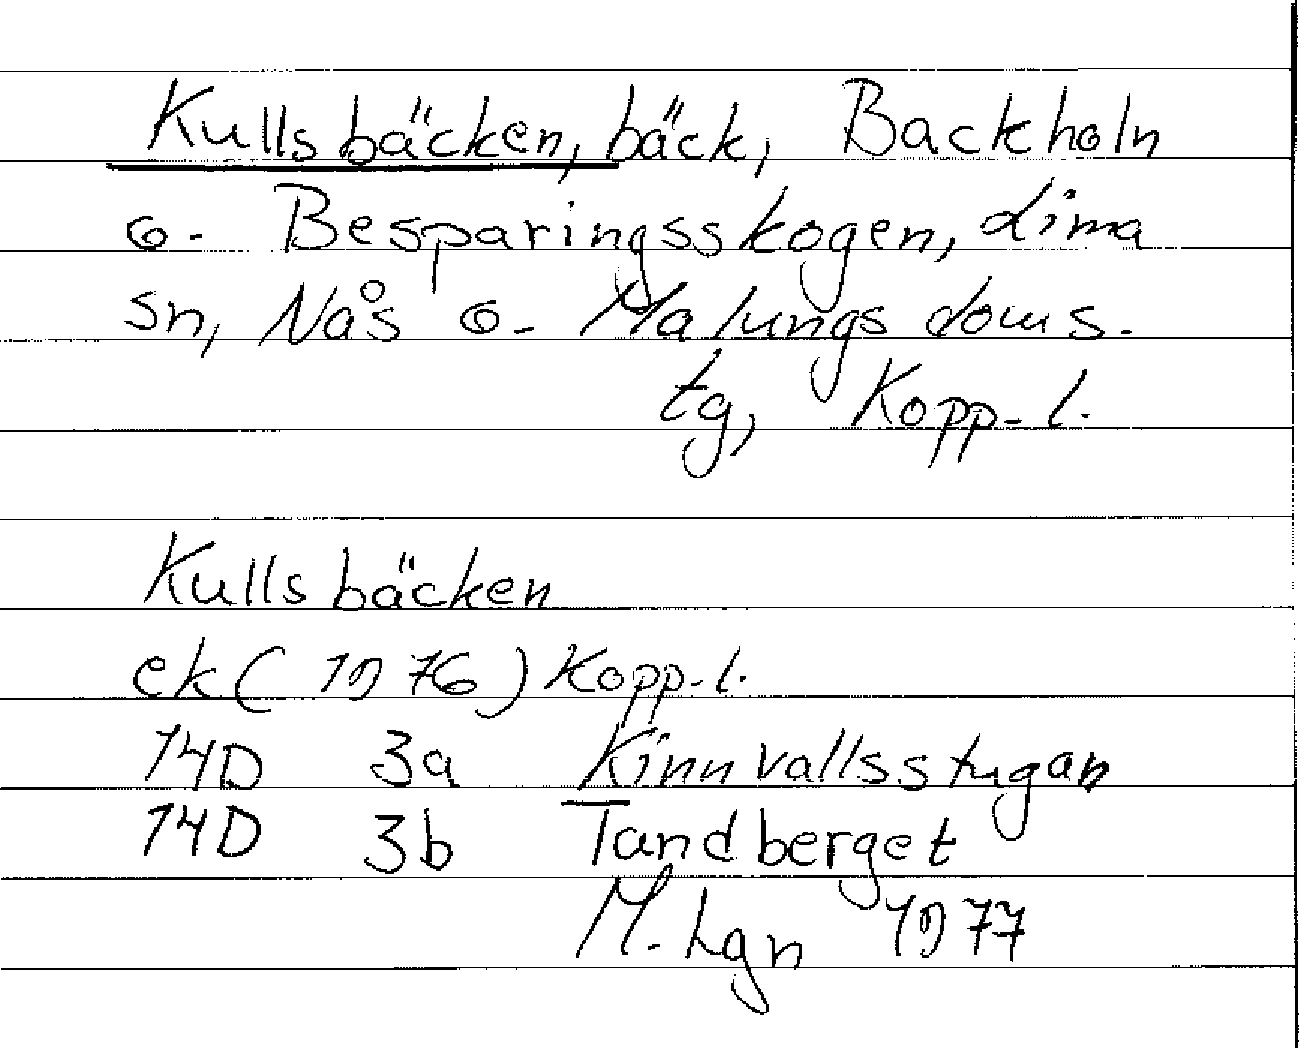 Kullsbäcken, bäck, Backholn
o. Besparingsskogen, Lima
sn, Nås o. Malungs doms.
tg, Kopp. l.
Kullsbäcken
ek (1976) Kopp. l.
14D 3a Kinnvallsstugan
14D 3b Tandberget
M. Lgn 1977